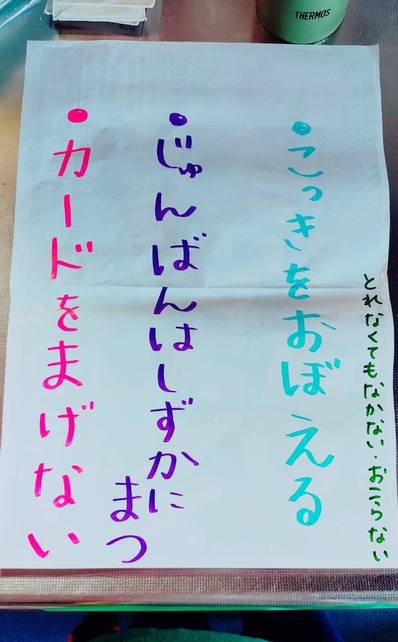 THERMOS
●こっきをおぼえる
とれなくてもなかない・おこらない
●じゅんばんはしずかに
まつ
●カードをまげない